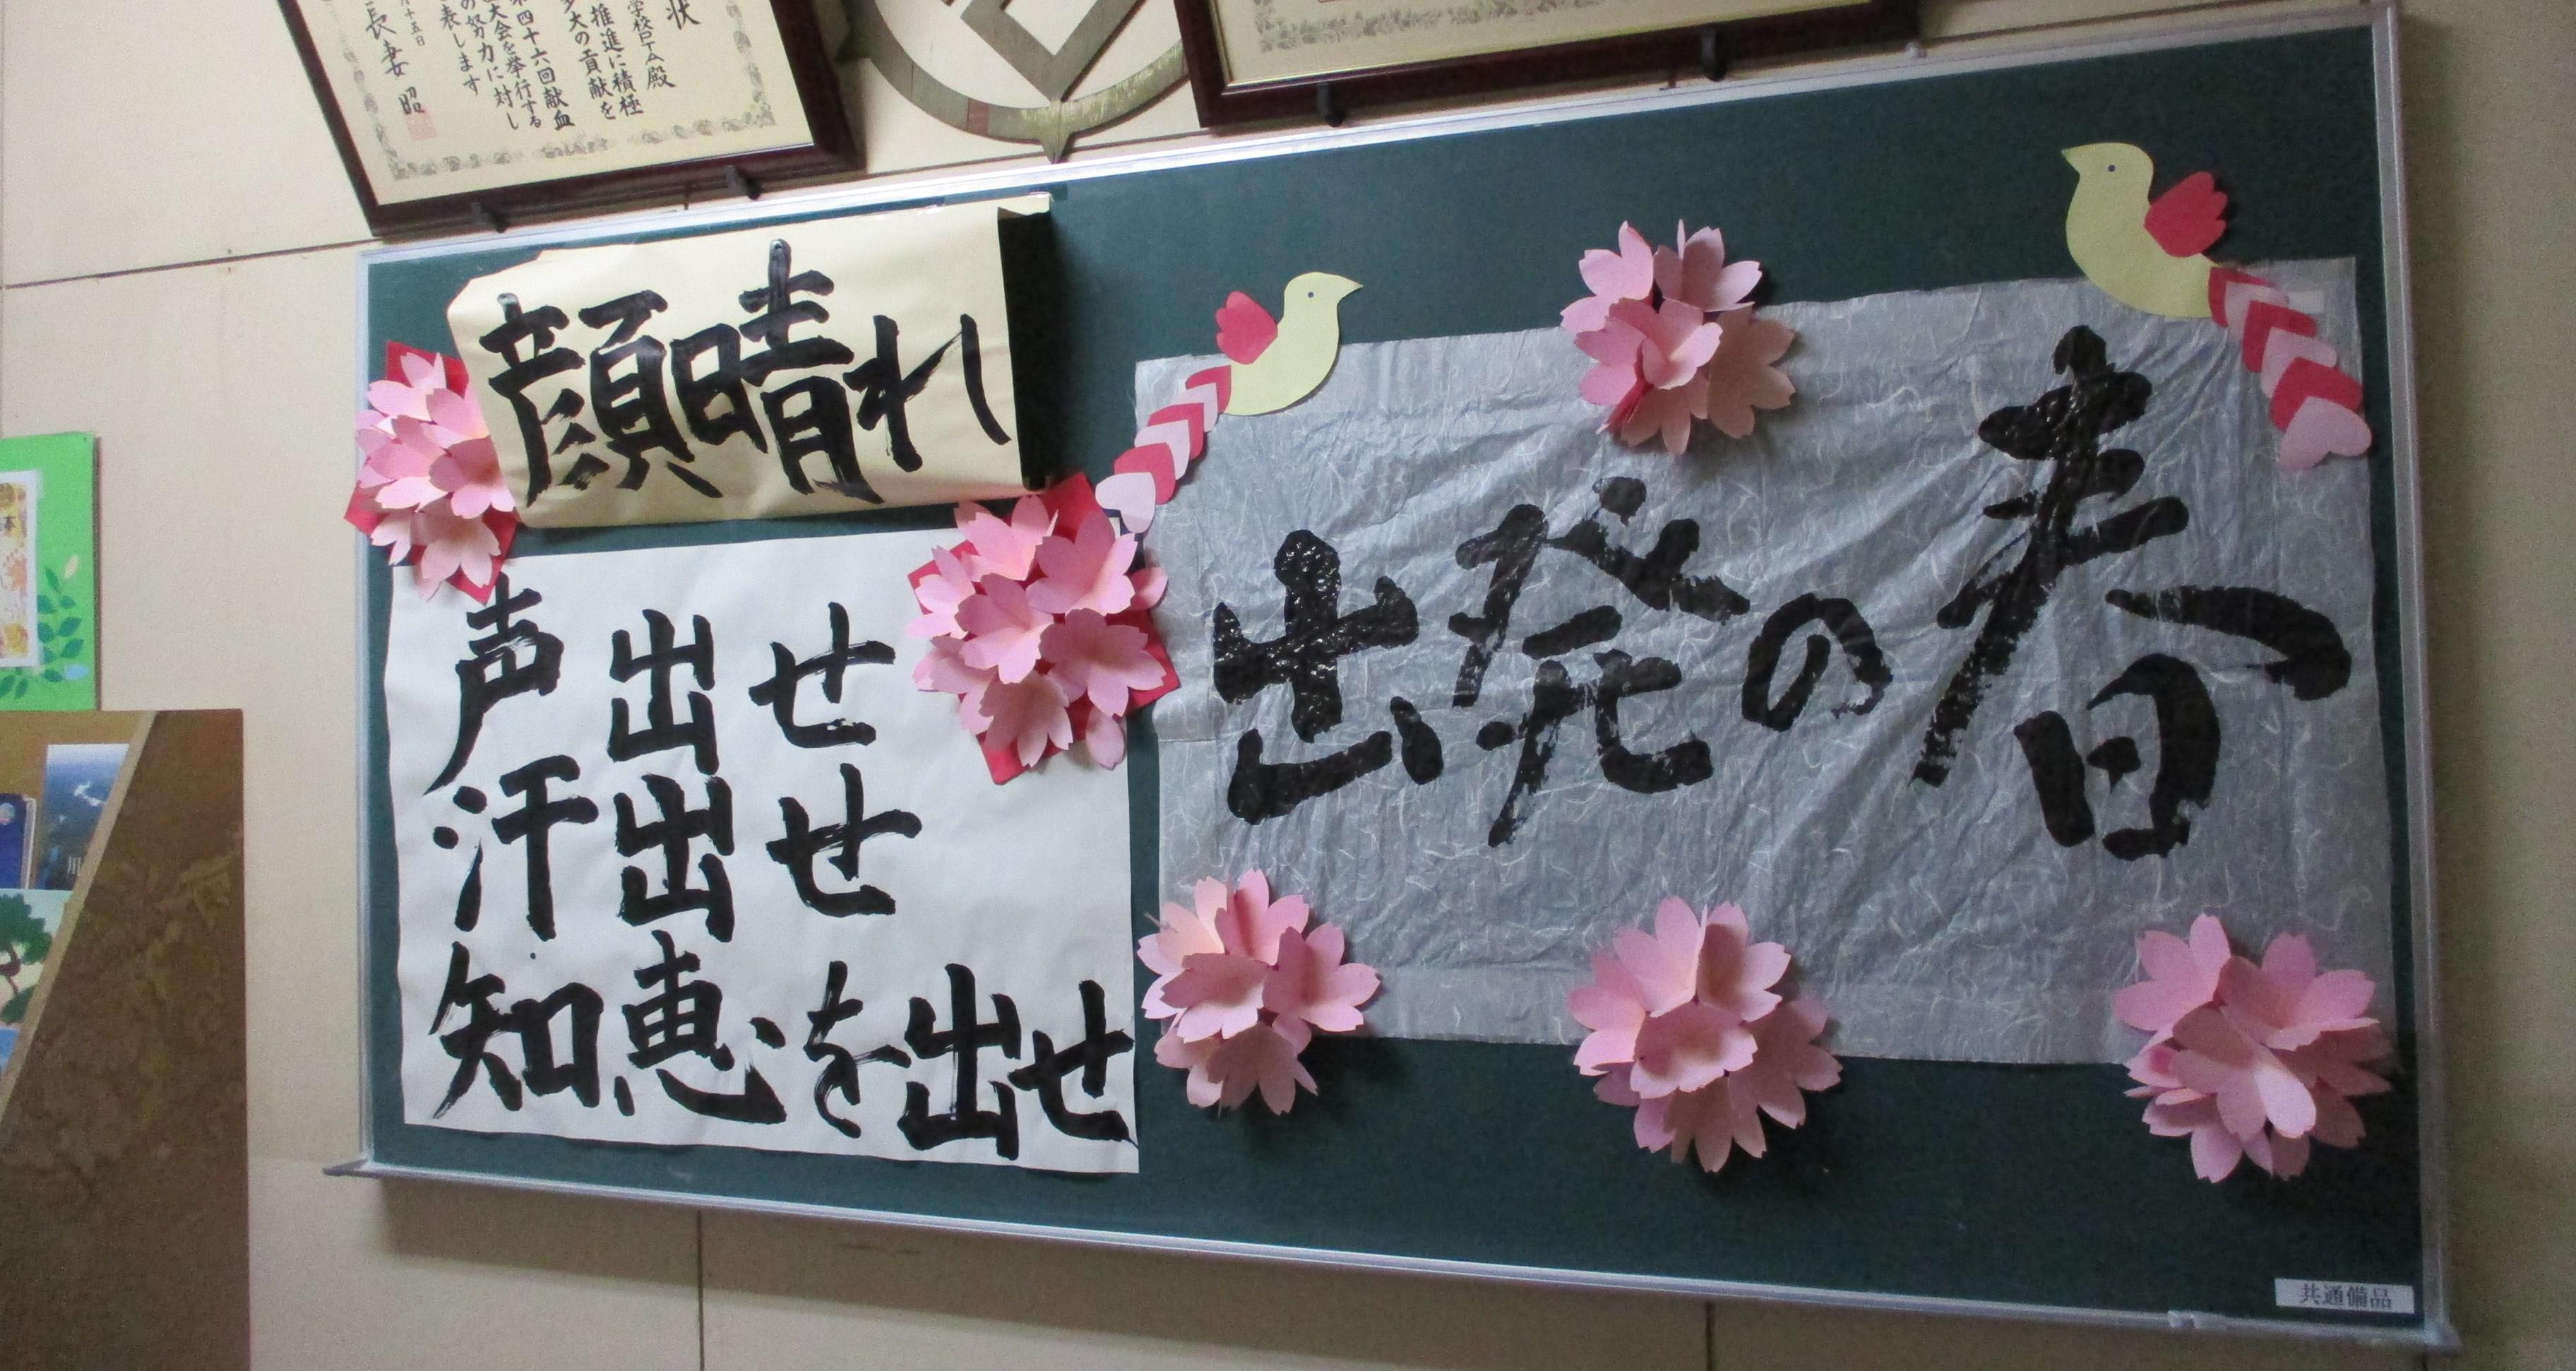 状
学校PTA殿
推進に積極
多大の貢献を
第四十六回献血
大会を挙行する
の努力に対し
表します
月十五日
長妻昭
顔晴れ
声出せ
汗出せ
知恵を出せ
出発の春
共通備品